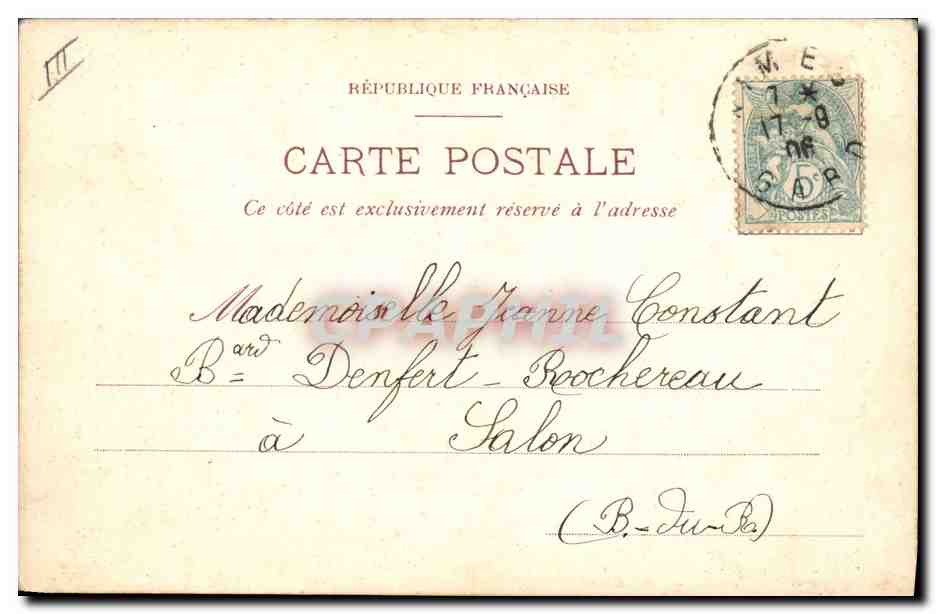 III
RÉPUBLIQUE FRANÇAISE
CARTE POSTALE
Ce côté est exclusivement réservé à l'adresse
NIMES
7 *
17 -9
06
GARD
5c
POSTES
CPAPHIL
Mademoiselle Jeanne Constant
Bard Denfert-Rochereau
à Salon
(B.-du-R)